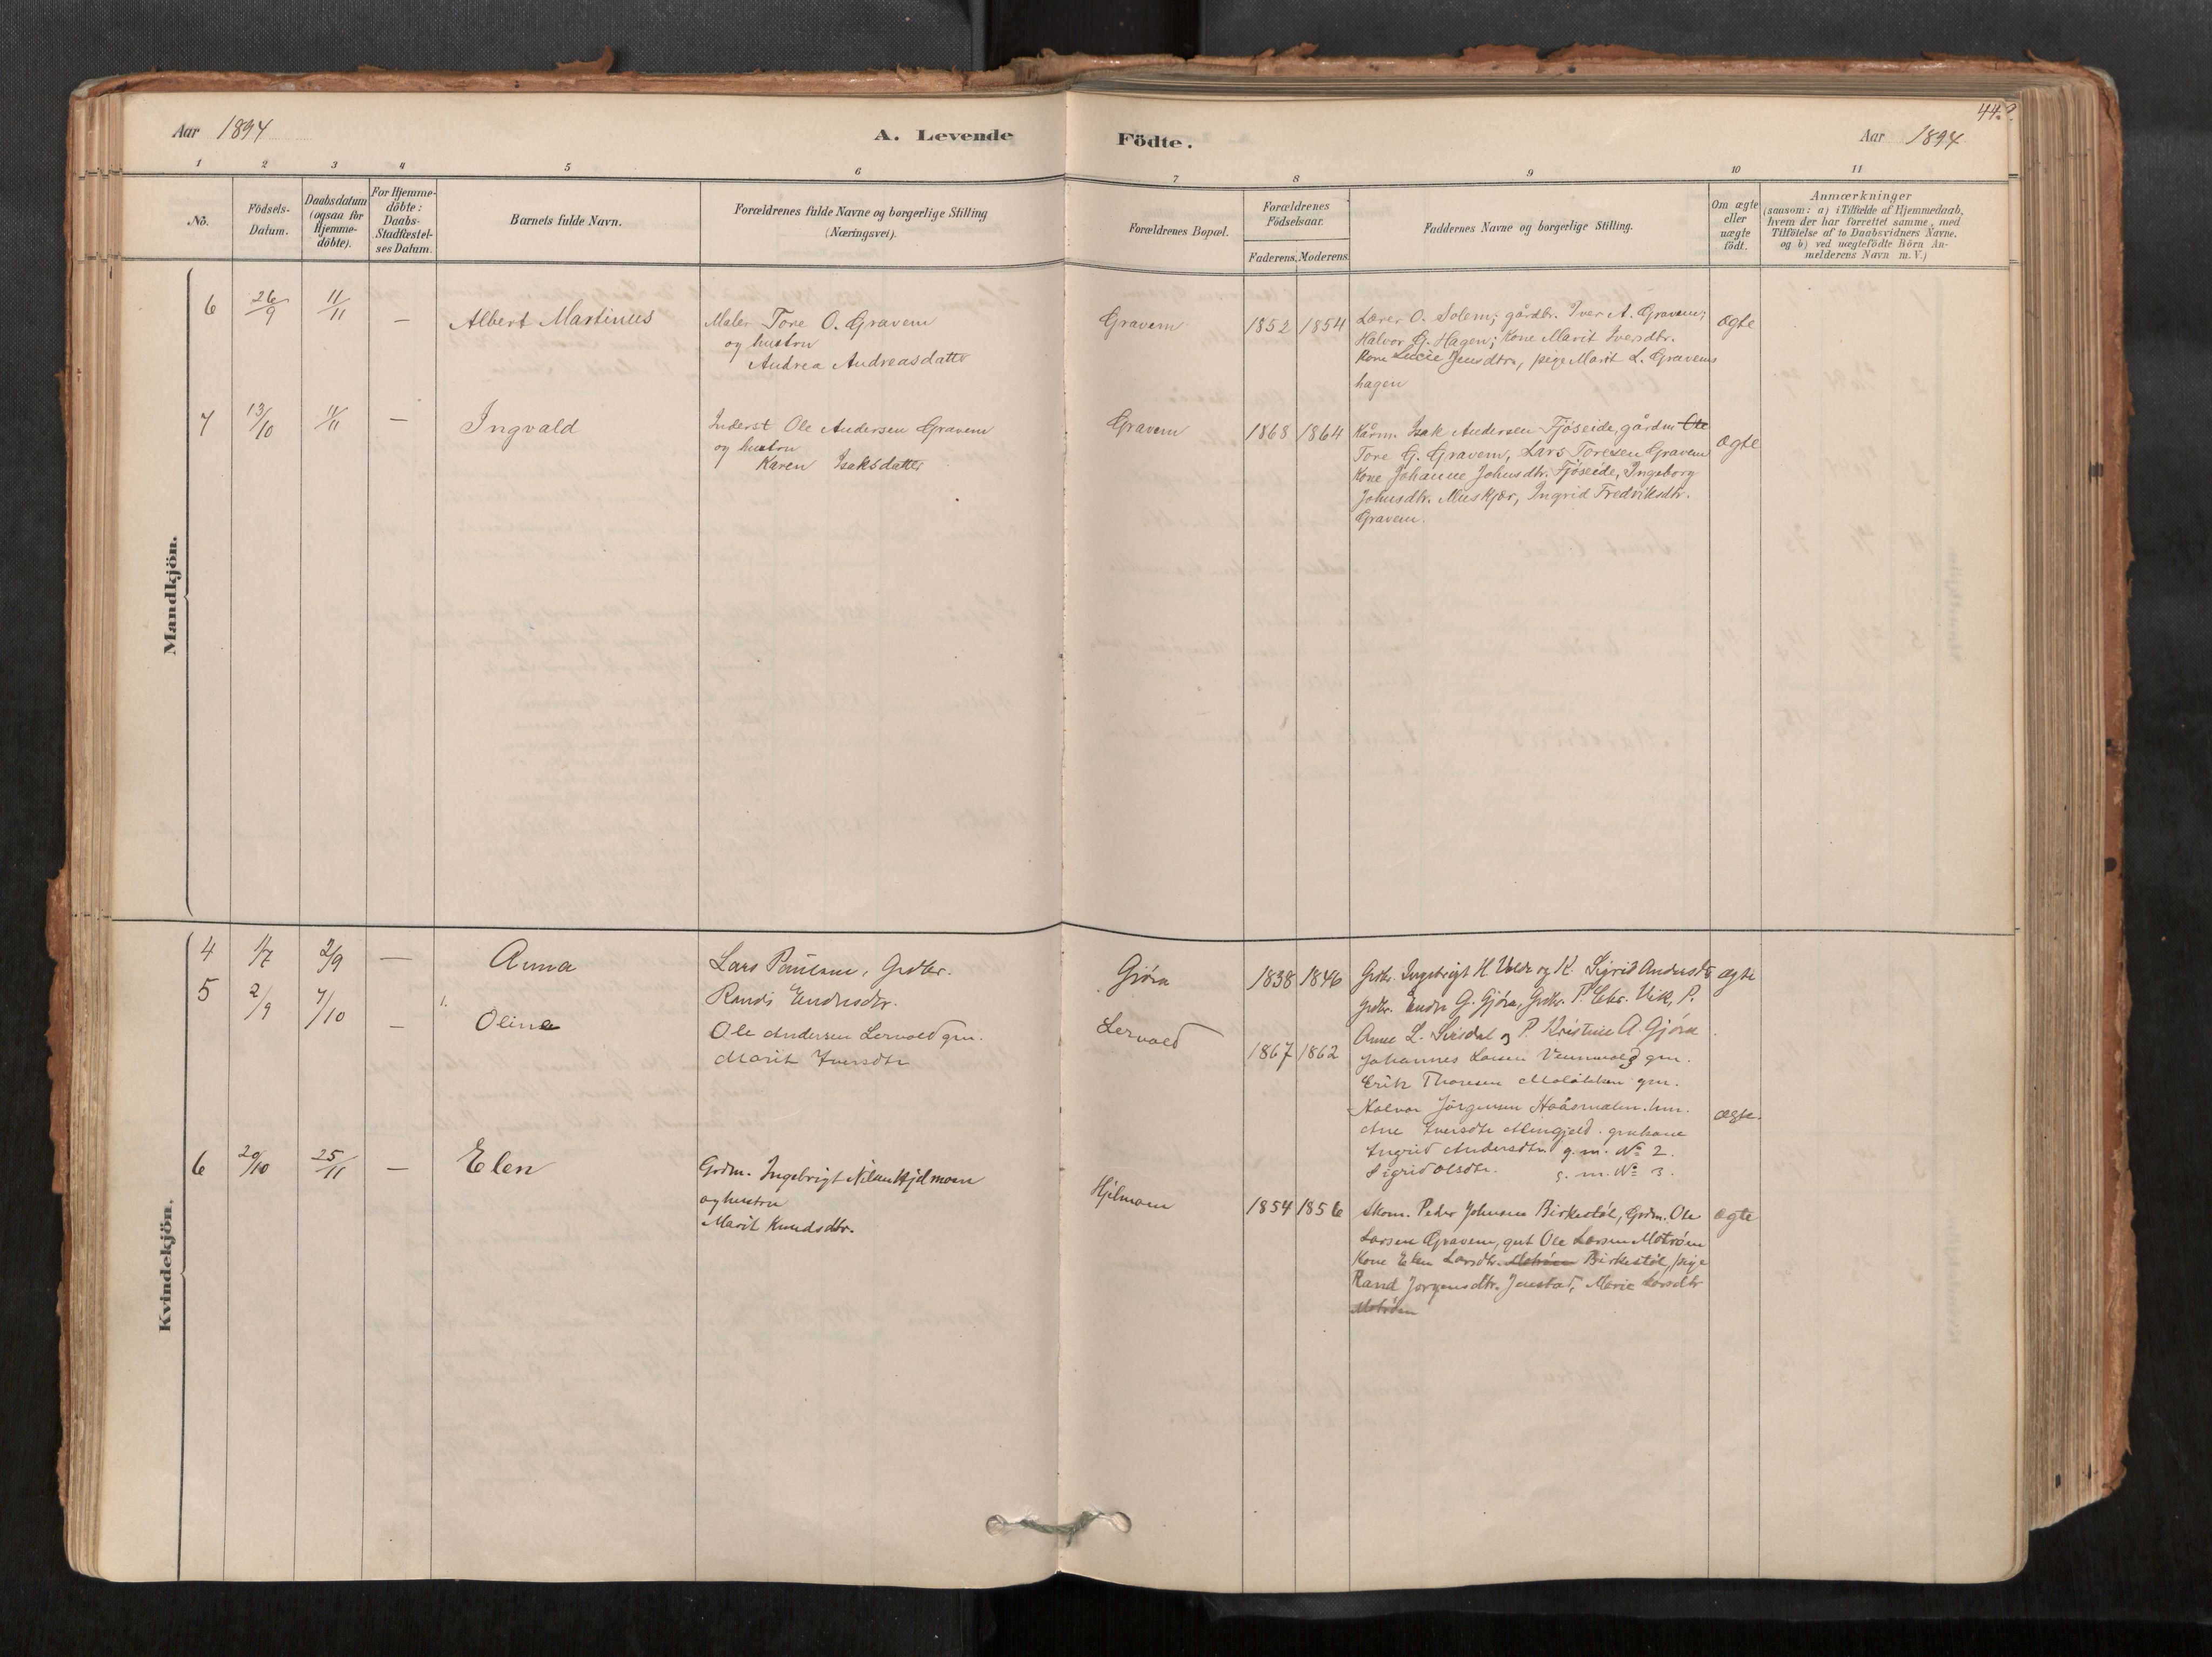 Aar 1894
A. Levende
Födte.
Aar 1894
442.
1 2 3 4 5 6 7 8 9 10 11
No.
Födsels-
Datum.
Daabsdatum
(ogsaa for
Hjemme-
döbte).
For Hjemme-
döbte:
Daabs-
Stadfæstel-
ses Datum.
Barnets fulde Navn.
Forældrenes fulde Navne og borgerlige Stilling
(Næringsvei).
Forældrenes Bopæl.
Forældrenes
Födselsaar.
Faderens. Moderens.
Faddernes Navne og borgerlige Stilling.
Om ægte
eller
uægte
födt.
Anmærkninger
(saasom: a) i Tilfælde af Hjemmedaab,
hvem der har forrettet samme, med
Tilföielse af to Daabsvidners Navne,
og b) ved uægtefödte Börn An-
melderens Navn m. V.)
Mandkjön.
6 26/9 11/11 — Albert Martinus
Maler Tore O. Gravem
og hustru
Andrea Andreasdatter
Gravem 1852 1854
Lærer O. Solem; gårdbr. Iver A. Gravem;
Halvor G. Hagen; Kone Marit Iversdtr.
Kone Lucie Jensdtr, pige Marit L. Gravems
hagen
ægte
7 13/10 11/11 — Ingvald
Inderst Ole Andersen Gravem
og hustru
Karen Isaksdatter
Gravem 1868 1864
Kårm. Isak Andersen Fjöseide, gårdm. Ole
Tore G. Gravem, Lars Toresen Gravem
Kone Johanne Johnsdtr. Fjöseide, Ingeborg
Johnsdtr. Muskjær, Ingrid Fredriksdtr.
Gravem.
ægte
Kvindekjön.
4 1/7 2/9 — Anna
Lars Paulsen, Grdbr.
Randi Endresdtr.
Gjöra 1838 1846
Grdbr. Ingebrigt H. Volde og K. Sigrid Andersdtr
grdbr. Endre G. Gjöra, Grdbr. P. Chr. Vik, P.
Anne L. Svisdal og P. Kristine A. Gjöra
ægte
5 2/9 7/10 — 1. Oline
Ole Andersen Lervold gm.
Marit Iversdtr
Lervold 1867 1862
Johannes Larsen gm.
Erik Thoresen gm.
Halvor Jörgensen hm.
Ane Iversdtr gmkone
Ingrid Andersdtr. g. m. No 2.
Sigrid Olsdtr. g. m. No 3.
ægte.
6 29/10 25/11 — Elen
Grdm. Ingebrigt Nilsen Hjelmoen
og hustru
Marit Knudsdtr.
Hjelmoen 1854 1856
Skom. Peder Johnsen Birkestöl, Grdm. Ole
Larsen Gravem, gut Ole Larsen Moträen
Kone Elen Larsdtr. Birkestöl, pige
Rand Jorgensdtr. Jenstad, Marie Larsdtr
ægte